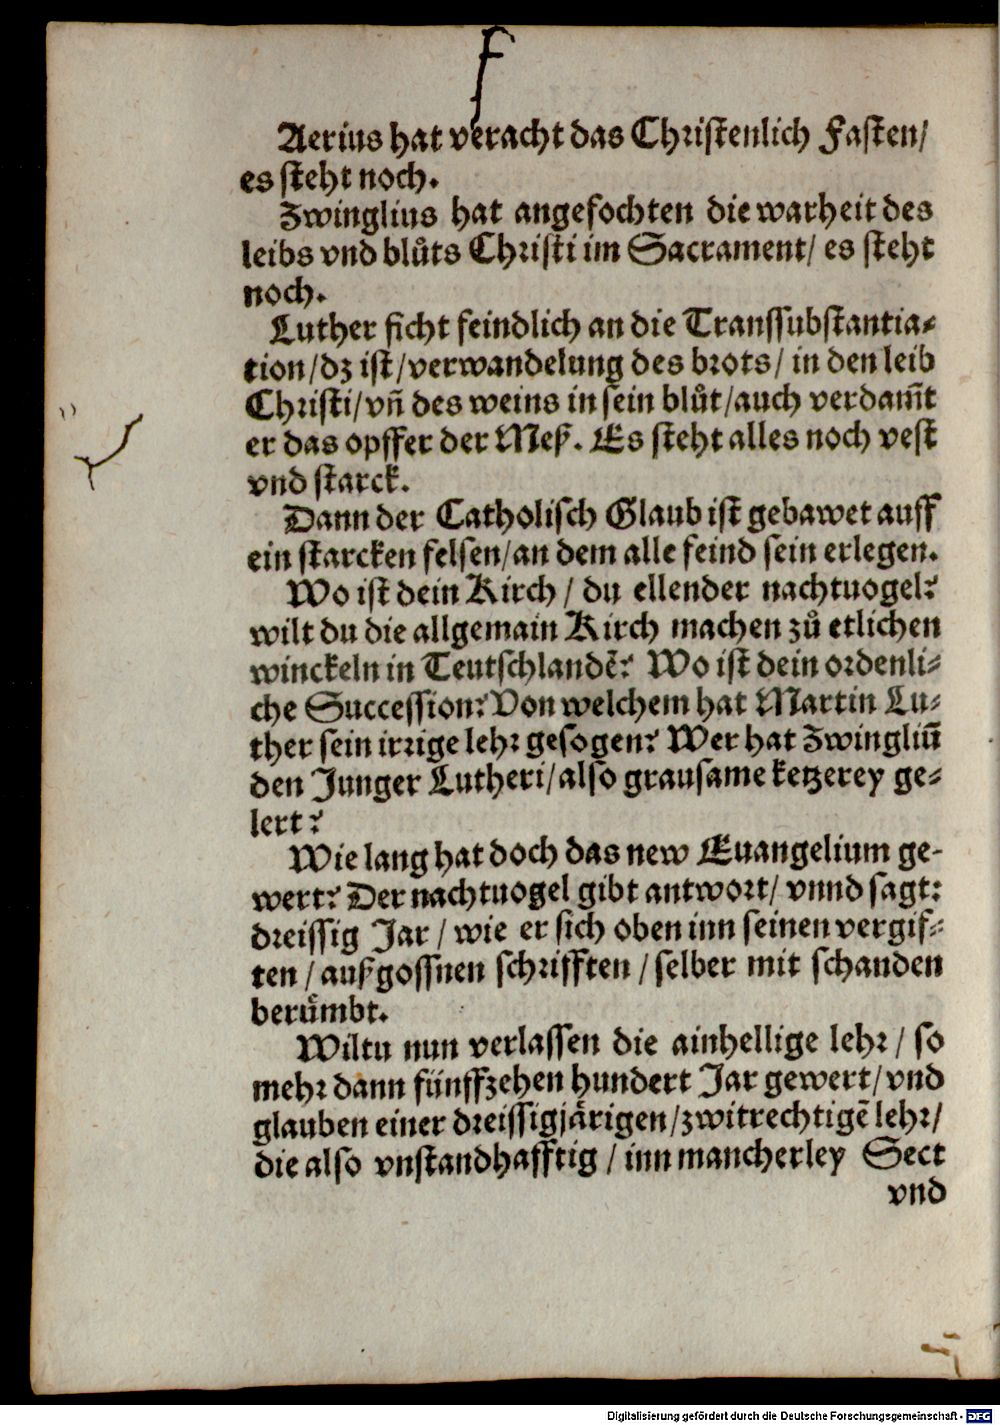 Aerius hat veracht das Christenlich Fasten/
es steht noch.
Zwinglius hat angefochten die warheit des
leibs vnd blůts Christi im Sacrament/ es steht
noch.
Luther ficht feindlich an die Transsubstantia-
tion/dz ist/verwandelung des brots/ in den leib
Christi/vñ des weins in sein blůt/auch verdam̃t
er das opffer der Meß. Es steht alles noch vest
vnd starck.
Dann der Catholisch Glaub ist gebawet auff
ein starcken felsen/an dem alle feind sein erlegen.
Wo ist dein Kirch / du ellender nachtuogel?
wilt du die allgemain Kirch machen zů etlichen
winckeln in Teutschlandẽ? Wo ist dein ordenli-
che Succession? Von welchem hat Martin Lu-
ther sein irrige lehr gesogen? Wer hat Zwingliũ
den Junger Lutheri/also grausame ketzerey ge-
lert?
Wie lang hat doch das new Euangelium ge-
wert? Der nachtuogel gibt antwort/ vnnd sagt:
dreissig Jar / wie er sich oben inn seinen vergif-
ten / außgossnen schrifften / selber mit schanden
berůmbt.
Wiltu nun verlassen die ainhellige lehr / so
mehr dann fünffzehen hundert Jar gewert/vnd
glauben einer dreissigjärigen/zwitrechtigẽ lehr/
die also vnstandhafftig / inn mancherley Sect
vnd
Digitalisierung gefördert durch die Deutsche Forschungsgemeinschaft - DFG